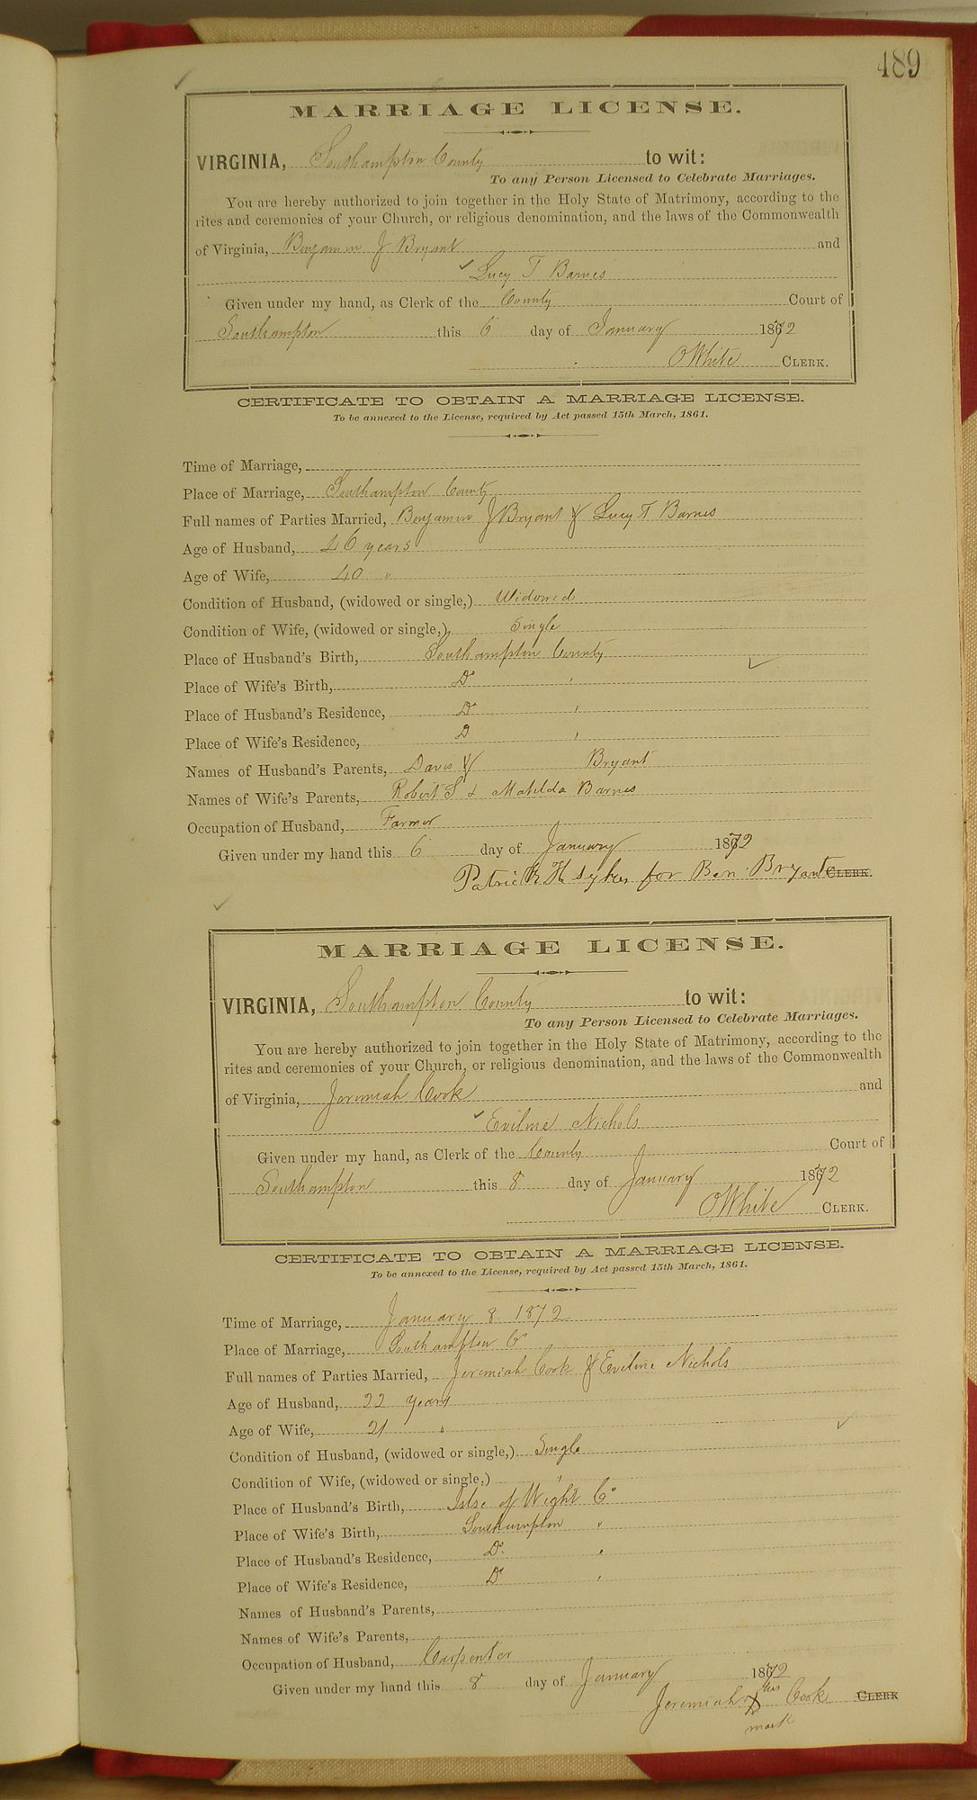 489
MARRIAGE LICENSE.
VIRGINIA, Southampton County to wit:
To any Person Licensed to Celebrate Marriages.
You are hereby authorized to join together in the Holy State of Matrimony, according to the
rites and ceremonies of your Church, or religious denomination, and the laws of the Commonwealth
of Virginia, Benjamin J Bryant and
Lucy T Barnes
Given under my hand, as Clerk of the County Court of
Southampton this 6 day of January 1872
O White CLERK.
CERTIFICATE TO OBTAIN A MARRIAGE LICENSE.
To be annexed to the License, required by Act passed 15th March, 1861.
Time of Marriage,
Place of Marriage, Southampton County
Full names of Parties Married, Benjamin J Bryant & Lucy T Barnes
Age of Husband, 46 years
Age of Wife, 40 "
Condition of Husband, (widowed or single,) Widowed
Condition of Wife, (widowed or single,) Single
Place of Husband's Birth, Southampton County
Place of Wife's Birth, Do "
Place of Husband's Residence, Do "
Place of Wife's Residence, D "
Names of Husband's Parents, Davis & Bryant
Names of Wife's Parents, Robert S & Matilda Barnes
Occupation of Husband, Farmer
Given under my hand this 6 day of January 1872
Patrick H Sykes for Ben. Bryant CLERK.
MARRIAGE LICENSE.
VIRGINIA, Southampton County to wit:
To any Person Licensed to Celebrate Marriages.
You are hereby authorized to join together in the Holy State of Matrimony, according to the
rites and ceremonies of your Church, or religious denomination, and the laws of the Commonwealth
of Virginia, Jeremiah Cook and
Eviline Nichols
Given under my hand, as Clerk of the County Court of
Southampton this 8 day of January 1872
O White CLERK.
CERTIFICATE TO OBTAIN A MARRIAGE LICENSE.
To be annexed to the License, required by Act passed 15th March, 1861.
Time of Marriage, January 8 1872
Place of Marriage, Southampton Co
Full names of Parties Married, Jeremiah Cook & Eviline Nichols
Age of Husband, 22 years
Age of Wife, 21 "
Condition of Husband, (widowed or single,) Single
Condition of Wife, (widowed or single,) "
Place of Husband's Birth, Isle of Wight Co
Place of Wife's Birth, Southampton "
Place of Husband's Residence, Do "
Place of Wife's Residence, Do "
Names of Husband's Parents,
Names of Wife's Parents,
Occupation of Husband, Carpenter
Given under my hand this 8 day of January 1872
Jeremiah X his Cook CLERK
mark